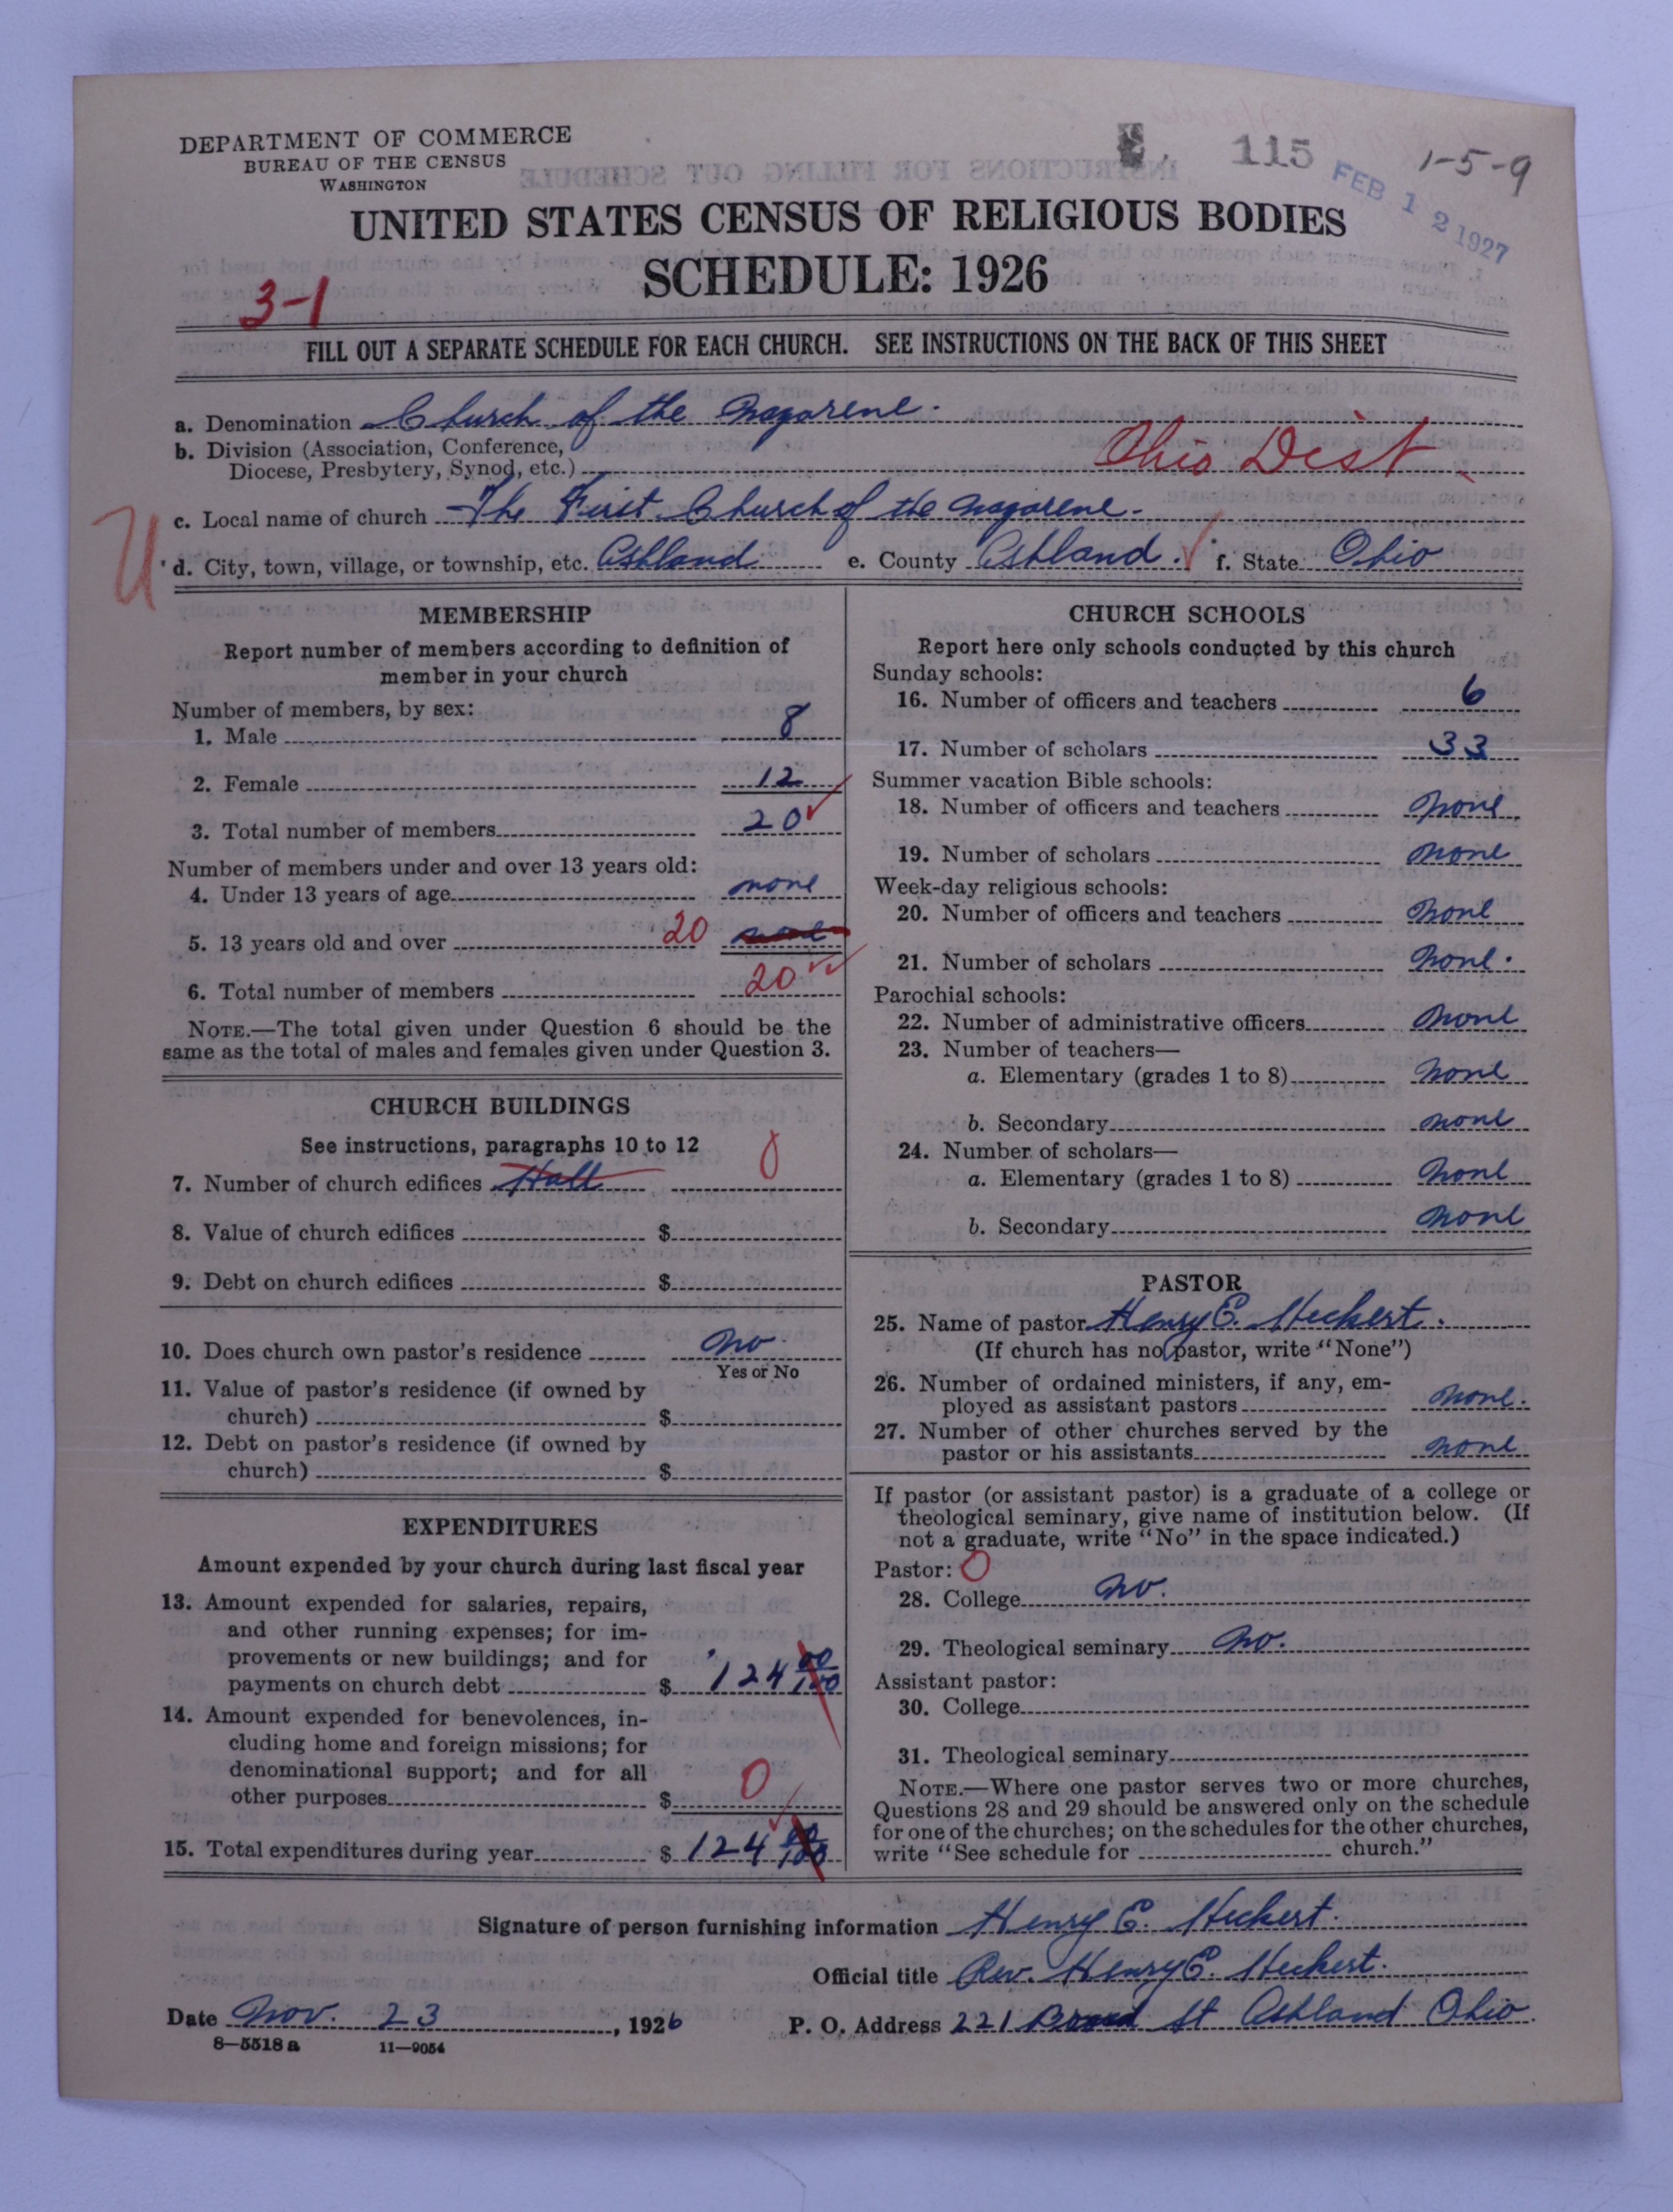 DEPARTMENT OF COMMERCE
BUREAU OF THE CENSUS
WASHINGTON
115
FEB 12 1927
1-5-9
UNITED STATES CENSUS OF RELIGIOUS BODIES
SCHEDULE: 1926
3-1
FILL OUT A SEPARATE SCHEDULE FOR EACH CHURCH. SEE INSTRUCTIONS ON THE BACK OF THIS SHEET
a. Denomination Church of the Nazarene.
b. Division (Association, Conference,
Diocese, Presbytery, Synod, etc.) Ohio Dist
c. Local name of church The First Church of the Nazarene.
U
d. City, town, village, or township, etc. Ashland e. County Ashland. f. State Ohio
MEMBERSHIP
Report number of members according to definition of
member in your church
Number of members, by sex:
1. Male 8
2. Female 12
3. Total number of members 20
Number of members under and over 13 years old:
4. Under 13 years of age none
5. 13 years old and over 20 none
6. Total number of members 20
NOTE.—The total given under Question 6 should be the
same as the total of males and females given under Question 3.
CHURCH BUILDINGS
See instructions, paragraphs 10 to 12
7. Number of church edifices Hall 0
8. Value of church edifices $
9. Debt on church edifices $
10. Does church own pastor's residence no
Yes or No
11. Value of pastor's residence (if owned by
church) $
12. Debt on pastor's residence (if owned by
church) $
EXPENDITURES
Amount expended by your church during last fiscal year
13. Amount expended for salaries, repairs,
and other running expenses; for im-
provements or new buildings; and for
payments on church debt $ 124 00/100
14. Amount expended for benevolences, in-
cluding home and foreign missions; for
denominational support; and for all
other purposes $ 0
15. Total expenditures during year $ 124 00/100
CHURCH SCHOOLS
Report here only schools conducted by this church
Sunday schools:
16. Number of officers and teachers 6
17. Number of scholars 33
Summer vacation Bible schools:
18. Number of officers and teachers none
19. Number of scholars none
Week-day religious schools:
20. Number of officers and teachers none
21. Number of scholars none.
Parochial schools:
22. Number of administrative officers none
23. Number of teachers—
a. Elementary (grades 1 to 8) none
b. Secondary none
24. Number of scholars—
a. Elementary (grades 1 to 8) none
b. Secondary none
PASTOR
25. Name of pastor Henry E. Heckert.
(If church has no pastor, write "None")
26. Number of ordained ministers, if any, em-
ployed as assistant pastors none.
27. Number of other churches served by the
pastor or his assistants none
If pastor (or assistant pastor) is a graduate of a college or
theological seminary, give name of institution below. (If
not a graduate, write "No" in the space indicated.)
Pastor: 0
28. College no.
29. Theological seminary no.
Assistant pastor:
30. College
31. Theological seminary
NOTE.—Where one pastor serves two or more churches,
Questions 28 and 29 should be answered only on the schedule
for one of the churches; on the schedules for the other churches,
write "See schedule for church."
Signature of person furnishing information Henry E. Heckert.
Official title Rev. Henry E. Heckert.
Date Nov. 23, 1926 P. O. Address 221 Broad St Ashland Ohio
8—5518 a 11—9054